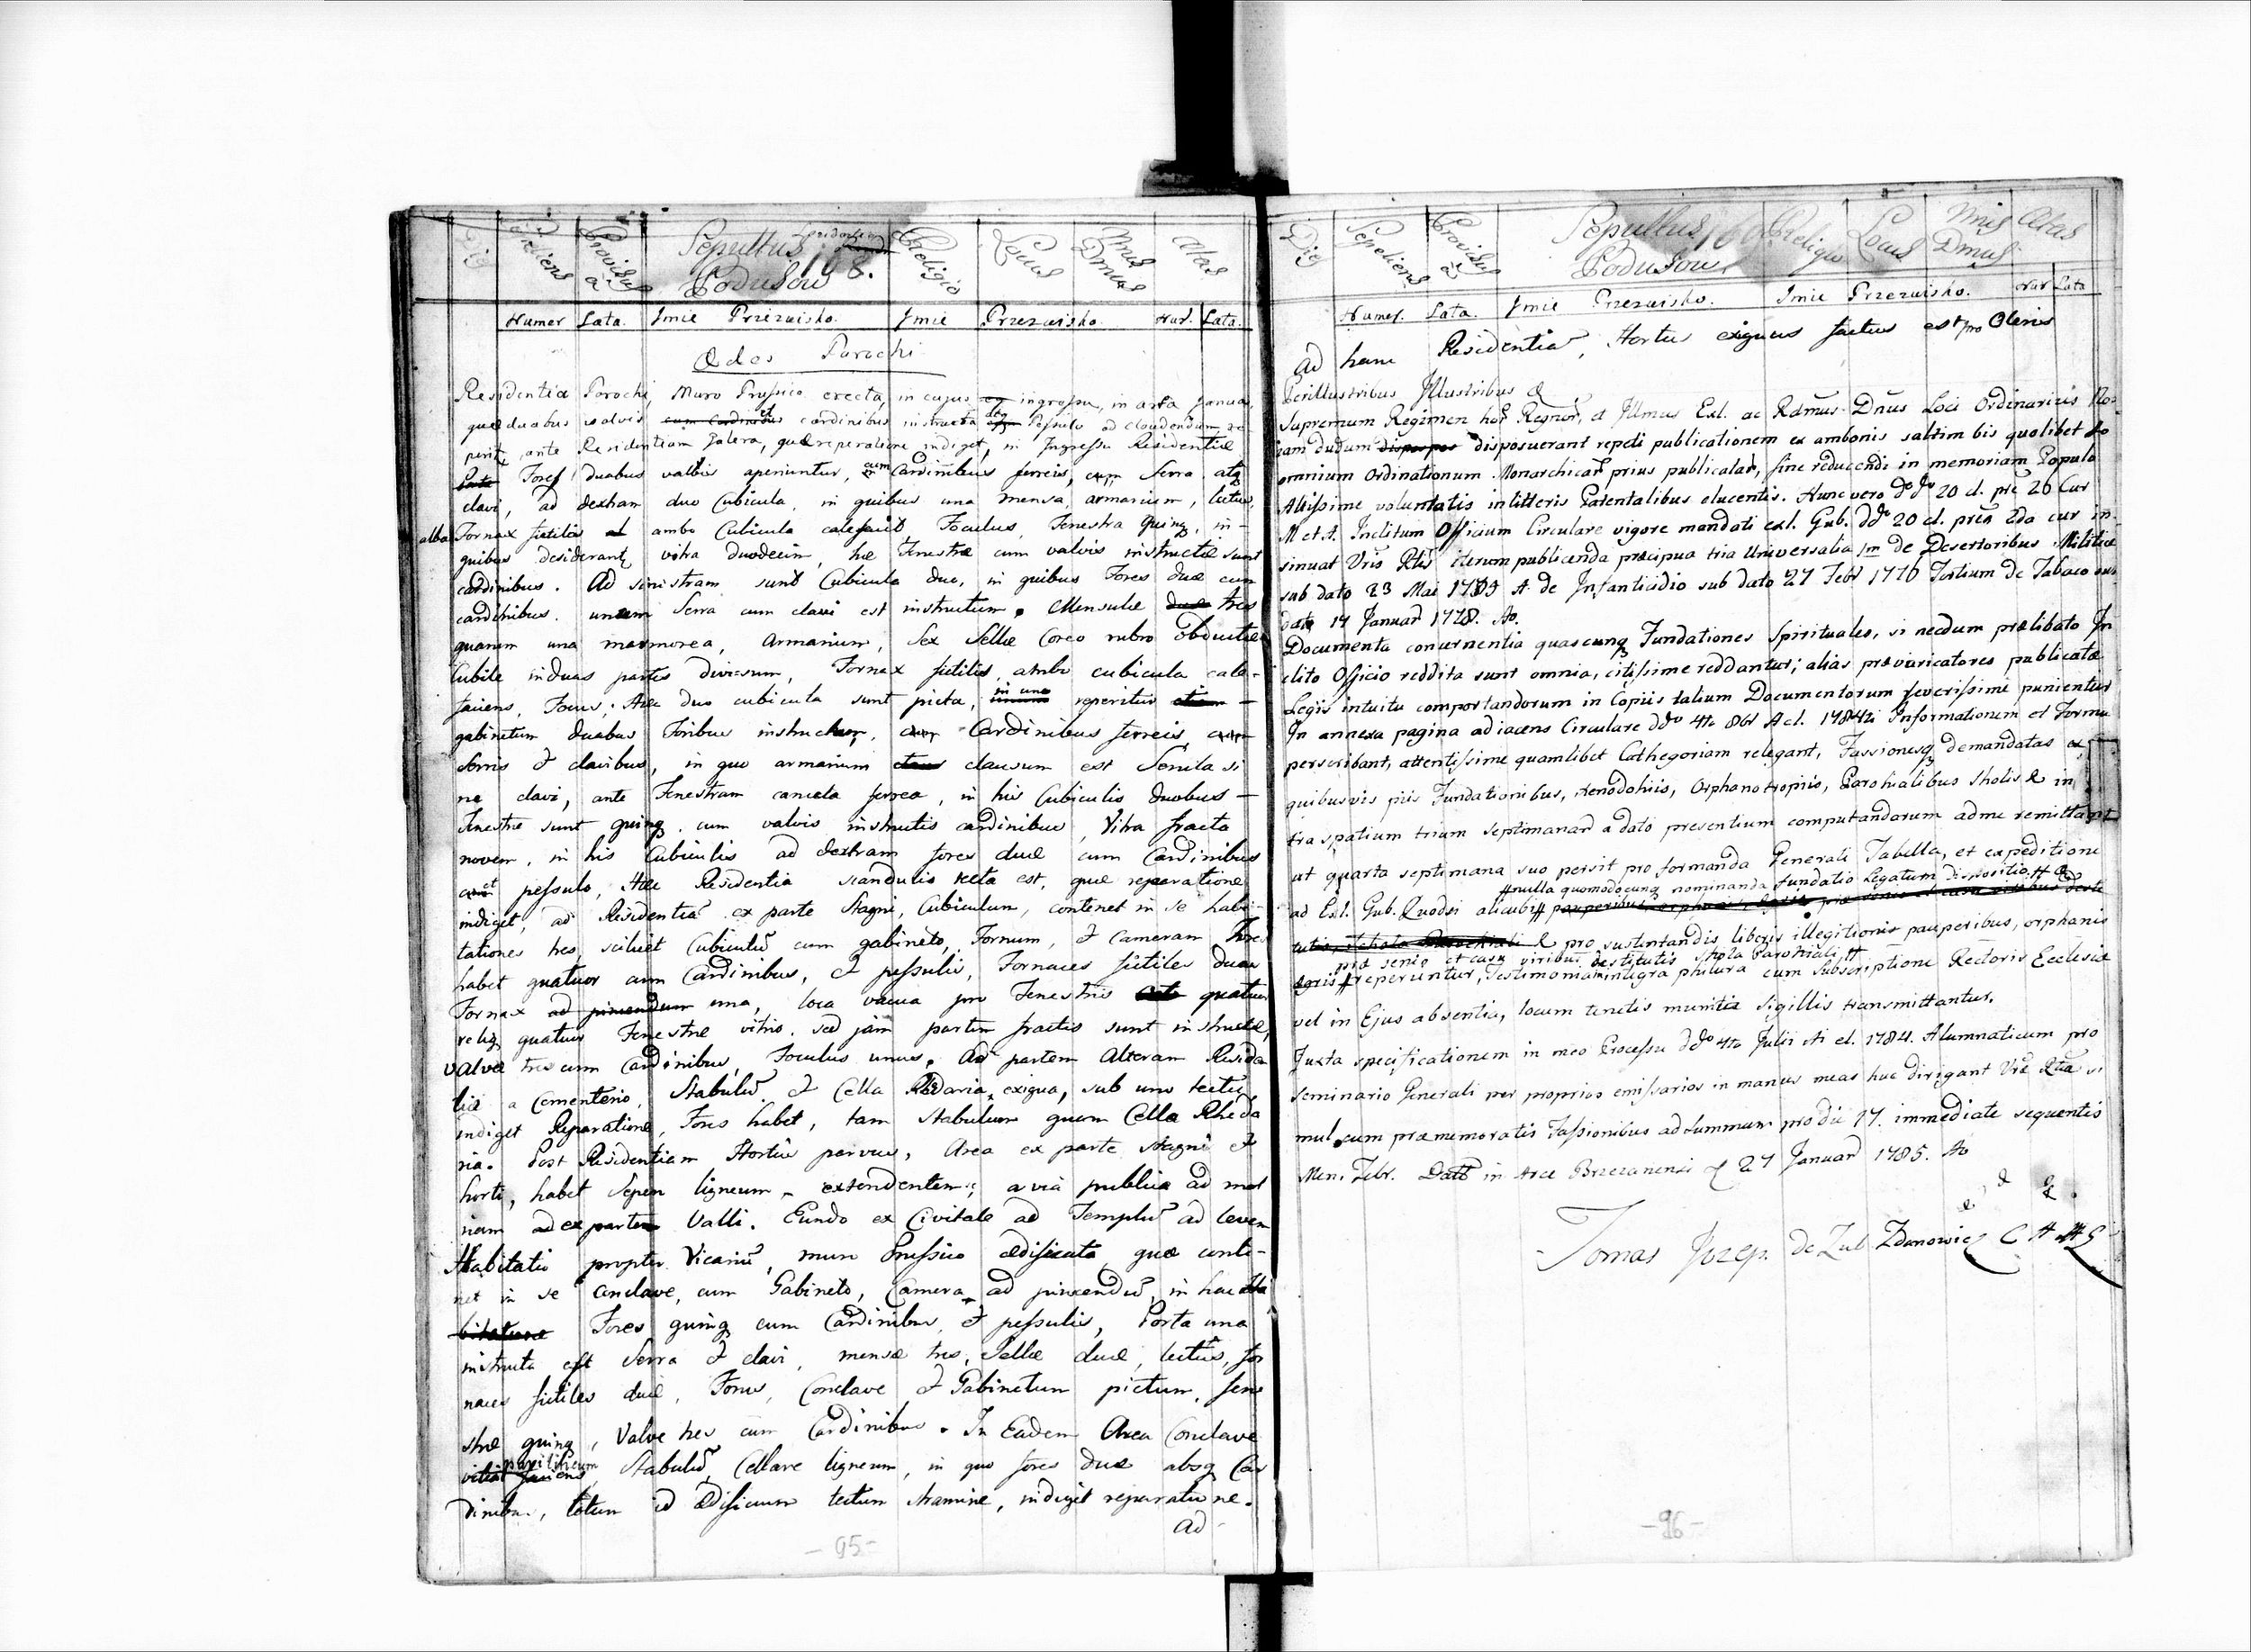 Dies Sepeliens Provisus a Sepultus Podusow 198. Religio Locus Nrus Domus Ætas
Numer Lata. Jmie Przezwisko. Jmie Przezwisko. Nur. Lata.
Ædes Parochi
Residentia Parochi, Muro Prussico erecta, in cujus ingressu, in arta janua,
quæ duabus valvis et cardinibus instructa atq Pessulo ad claudendum re
perit, ante Residentiam galera, quæ reparatione indiget, in Ingressu Residentiæ
Fores duabus valvis aperiuntur, cum Cardinibus ferreis, cum serra atq
clavi, ad dextram duo Cubicula, in quibus una mensa, armarium, lectus,
alba Fornax fictilis ambo Cubicula calefacit, Foculus, Fenestra quinq, in
quibus desiderant vitra duodecim, hæ Fenestræ cum valvis instructæ sunt
cardinibus. Ad sinistram sunt Cubicula duo, in quibus Fores duæ cum
cardinibus. unam Serra cum clavi est instructum. Mensulæ duæ tres
quarum una marmorea, Armarium, sex Sellæ Coreo rubro obductæ
Cubile in duas partes divisum, Fornax fictilis, ambo cubicula cale-
faciens, Focus; Hæc duo cubicula sunt picta, in uno reperitur
gabinetum duabus Foribus instructum, Cardinibus ferreis,
Serris & clavibus, in quo armarium clausum est Serula si
ne clavi, ante Fenestram ferrea, in his Cubiculis duobus
Fenestræ sunt quinq. cum valvis instructis cardinibus, Vitra fracta
novem, in his Cubiculis ad dextram fores duæ cum Cardinibus
et pessulo, Hæc Residentia scandulis tecta est, quæ reparatione
indiget, ad Residentiã ex parte Stagni, Cubiculum, continet in se habi-
tationes tres, scilicet Cubiculũ cum gabineto, Fornum, & Cameram Fores
habet quatuor cum Cardinibus, & pessulis, Fornaces fictiles duæ
Fornax ad pinsendum una, loca vacua pro Fenestris quatuor
reliq quatuor Fenestræ vitris. sed jam partim fractis sunt instructæ,
valvæ tres cum Cardinibus, Foculus unus. Ad partem Alteram Residen
tiæ a Cementerio, Stabulũ & Cella Rhedaria exigua, sub uno tecto
indiget Reparatione, Fores habet, tam Stabulum quam Cella Rheda
ria. Post Residentiam Hortus parvus, Area ex parte Stagni &
horti, habet Sepem ligneum extendentem, a via publica ad
ad ex partem Valli. Eundo ex Civitate ad Templũ ad levam
Habitatio propter Vicariũ, muro Prussico ædificata, quæ conti-
net in se Conclave, cum Gabineto, Camera ad pinsendũ, in hac Ha
bitatione Fores quinq cum Cardinibus, & pessulis, Porta una
instructa est Serra & clavi, mensæ tres, Sellæ duæ, lectus, for
naces fictiles duæ, Fornus, Conclave & Gabinetum pictum, fene
stræ quinq, Valvæ tres cum Cardinibus. In Eadem Area Conclave
Stabulũ, Cellare ligneum, in quo fores duæ absq Car
dinibus, totum id Ædificium tectum stramine, indiget reparatione.
ad
- 95 -
Dies Sepeliens Provisus a Sepultus Podusow Religio Locus Nrus Dmus Ætas
Numer. Lata. Jmie Przezwisko. Jmie Przezwisko. Nur Lata
ad hanc Residentiã, Hortus exiguus factus est pro Oleris
Perillustribus Jllustribus &
Supremum Regimen hor Regnor, et Jllmus Exl. ac Rdmus Dnus Loci Ordinarius No
iam dudum disposuerant repeti publicationem ex ambonis saltim bis quolibet Ao
omnium Ordinationum Monarchicar prius publicatar, sine reducendi in memoriam Populo
Altissime voluntatis in litteris Patentalibus elucentis. Nunc vero ddo 20 cl. prê 20 Cur
M et A. Inclitum Officium Circulare vigore mandati exl. Gub. ddo 20 cl. pren 2da cur in
sinuat Vris Rtis iterum publicanda præcipua tria Universalia 1m de Desertoribus Militiæ
sub dato 23 Mai 1785 A. de Jnfanticidio sub dato 27 Febr 1770 Tertium de Tabaco sub
dato 14 Januar 1778. Ao.
Documenta concernentia quascunq Fundationes Spirituales, si necdum prælibato In
clito Officio reddita sunt omnia, citissime reddantur; alias prævaricatores publicatæ
Legis intuitu comportandorum in Copiis talium Documentorum severissime punientur
In annexa pagina adiacens Circulare ddo 4to 8br A cl. 1784ti Jnformationem et Formu
perscribant, attentissime quamlibet Cathegoriam relegant, Fassionesq demandatas ex
quibusvis piis Fundationibus, xenodohiis, Orphanotrophiis, Parohialibus Sholis & in
tra spatium trium septimanar a dato presentium computandarum ad me remittant
ut quarta septimana suo persit pro formanda Generali Tabella, et expeditione
nulla quomodocunq nominanda fundatio Legatum dispositio &
ad Exl. Gub. Quodsi alicubi pauperibus, orphanis, ægris, præ senio et casu viribus desti
tutis, Schola Parochiali & pro sustentandis liberis illegitionis pauperibus, orphanis
præ senio et casu viribus destitutis Shola Parohiali
ægris reperiuntur, Testimonia integra philura cum Subscriptione Rectoris Ecclesiæ
vel in Ejus absentia, locum tenetis munita Sigillis transmittantur.
Juxta specificationem in meo Processu ddo 4to Julii Ai cl. 1784. Alumnaticum pro
Seminario Generali per proprios emissarios in manus meas huc dirigant Vræ Rtiæ si
mul cum præmemoratis Fassionibus ad summum pro die 17. immediate sequentis
Men. Febr. Datt in Arce Brzezanensi 27 Januar 1785. Ao
& & &.
Tomas Jozep. de Zub Zdanowicz
- 96 -